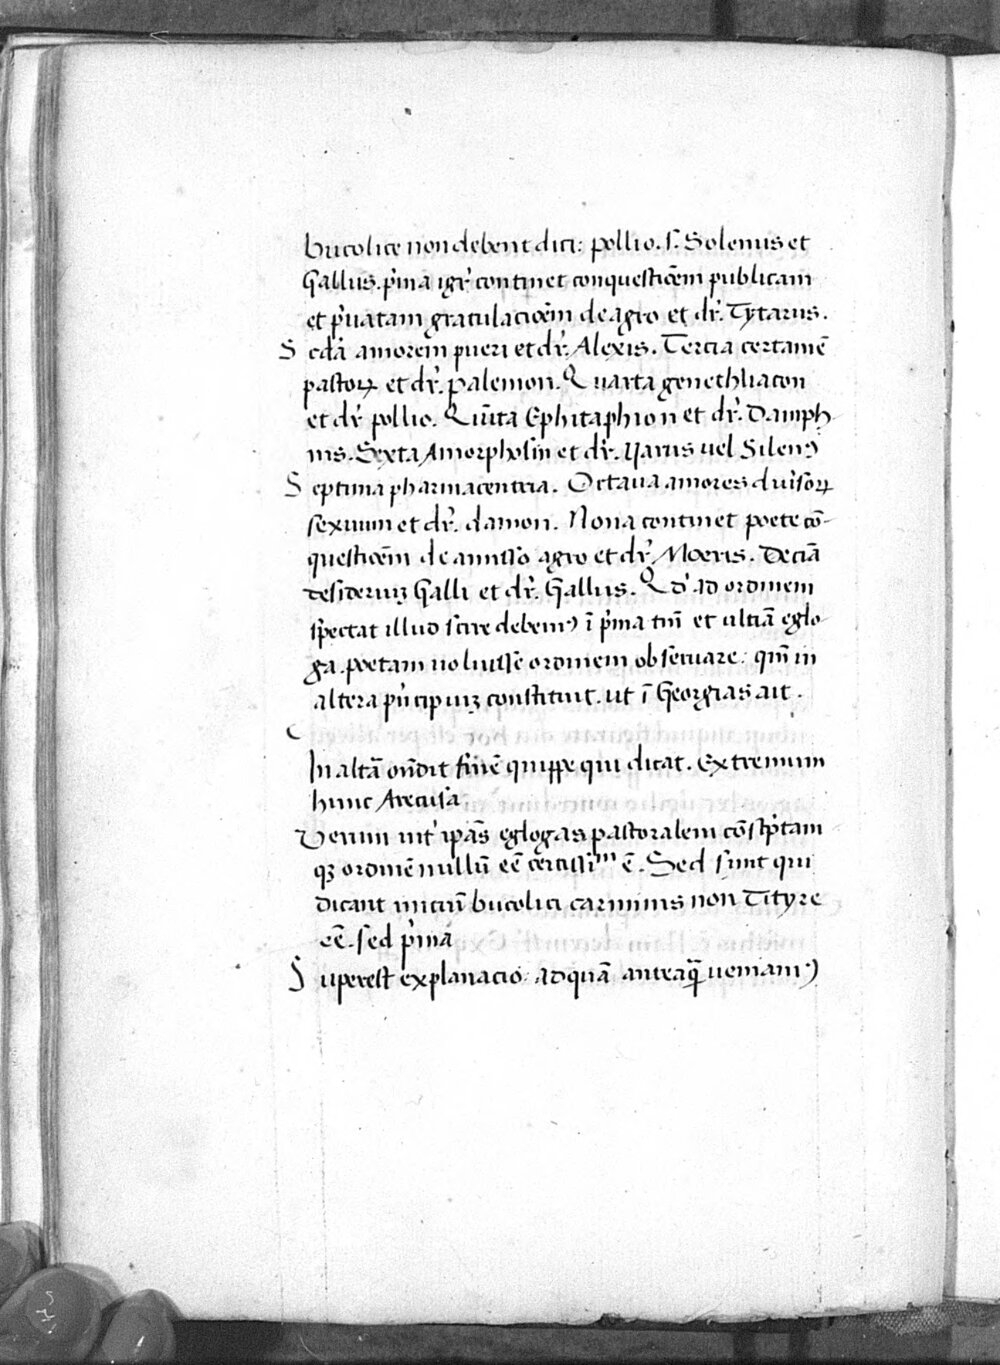 bucolice non debent dici: pollio. s. Solenus et
Gallus. p̓ma igr̓ continet conquestiōem publicam
et p̓uatam gratulaciōem de agro et dr̓. Tytarus.
S cda̓ amorem pueri et dr̓. Alexis. Tercia certamē
pastoꝝ et dr̓. palemon. Quarta genethliacon
et dr̓ pollio. Qui̅ta Ephitaphion et dr̓. Damph
nis. Sexta Amorphosin et dr̓. Uarus uel Silenꝰ
S eptima pharmaceutria. Octaua amores diuersoꝝ
sexuum et dr̓. damon. Nona continet poete cō-
questiōem de amisso agro et dr̓ Moeris. Deciā
desideriuꝫ Galli et dr̓. Gallus. Qd̓ ad ordinem
spectat illud scire debemꝰ ī p̓ma tm̄ et ultiā eglo
ga. poetam uoluisse ordinem obseruare: qm̄ in
altera pn̓cipiuꝫ constituit. ut ī Georgias ait.
In altā on̄dit finē quippe qui dicat. Extremum
hunc Arecusa
Uerum int̓ ip̄as eglogas pastoralem cōsc̓ptam
qꝫ ordinē nullū eē certissiᵐ ē. Sed sunt qui
dicant iniciū bucolici carminis non Tityre
eē. sed p̓ma
S uperest explanacio: ad quā antea qꝫ ueniamꝰ